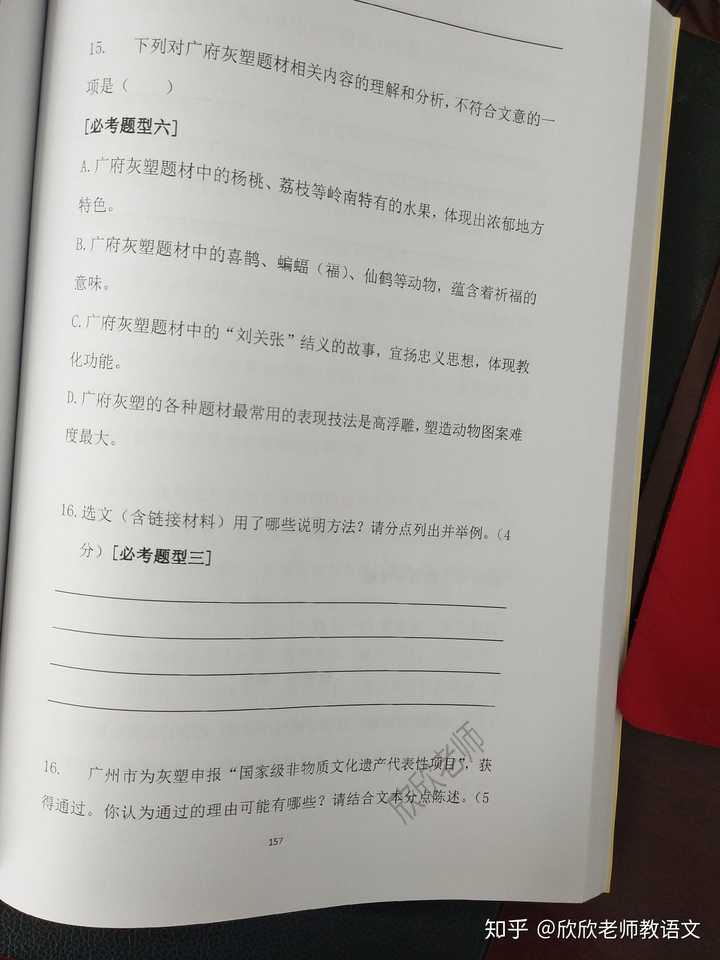 15. 下列对广府灰塑题材相关内容的理解和分析，不符合文意的一
项是（ ）
[必考题型六]
A.广府灰塑题材中的杨桃、荔枝等岭南特有的水果，体现出浓郁地方
特色。
B.广府灰塑题材中的喜鹊、蝙蝠（福）、仙鹤等动物，蕴含着祈福的
意味。
C.广府灰塑题材中的“刘关张”结义的故事，宣扬忠义思想，体现教
化功能。
D.广府灰塑的各种题材最常用的表现技法是高浮雕，塑造动物图案难
度最大。
16.选文（含链接材料）用了哪些说明方法？请分点列出并举例。（4
分）[必考题型三]
16. 广州市为灰塑申报“国家级非物质文化遗产代表性项目”，获
得通过。你认为通过的理由可能有哪些？请结合文本分点陈述。（5
欣欣老师
157
知乎 @欣欣老师教语文